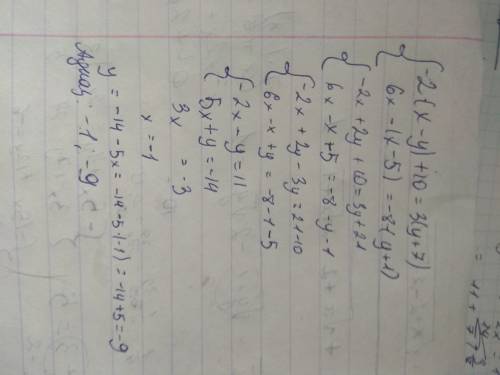 -2(x-y)+10=3(y+7)
6x-(x-5)=-8-(y+1)
-2x+2y+10=3y+21
6x-x+5=-8-y-1
-2x+2y-3y=21-10
6x-x+y=-8-1-5
-2x-y=11
5x+y=-14
3x =-3
x=-1
y=-14-5x=-14-5·(-1)=-14+5=-9